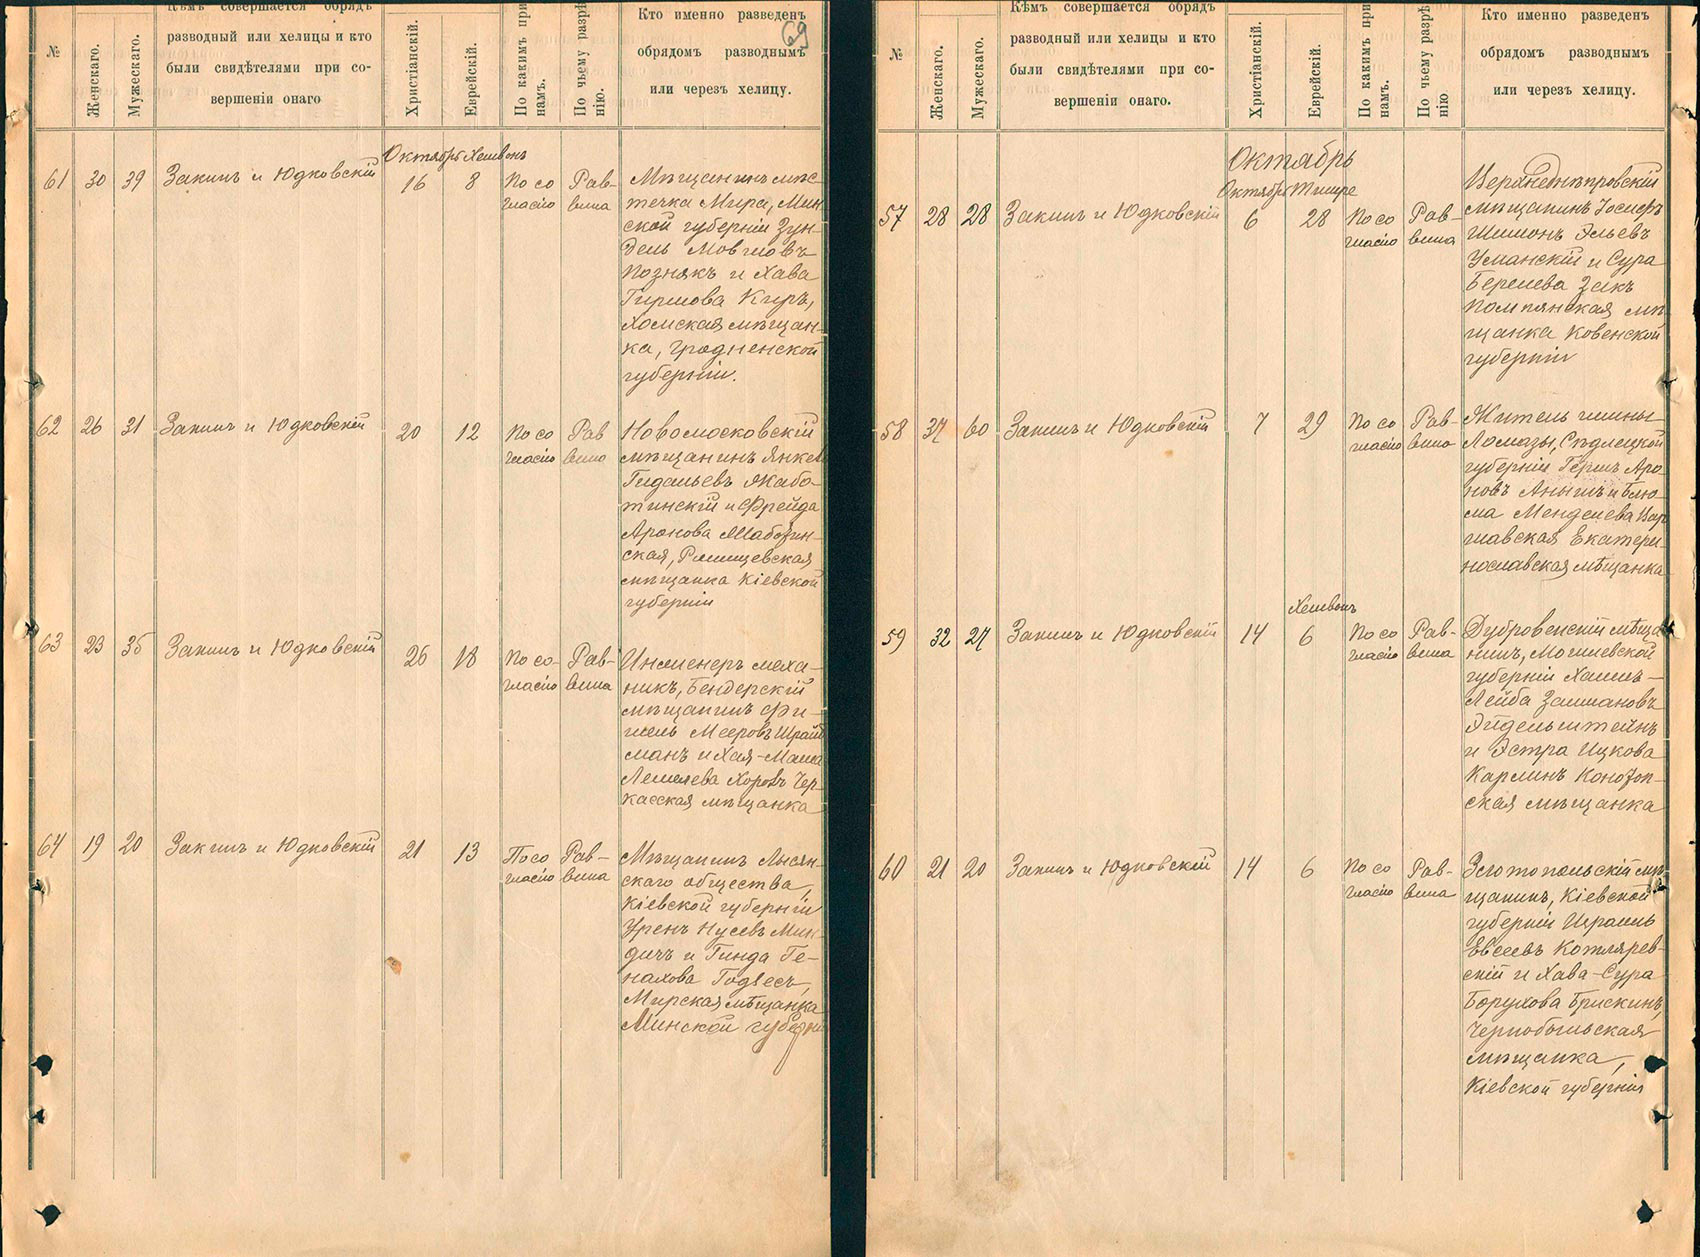 69
№
Женскаго.
Мужескаго.
Кѣмъ совершается обрядъ
разводный или хелицы и кто
были свидѣтелями при со-
вершеніи онаго
Христіанскій.
Еврейскій.
По какимъ при
намъ.
По чьему разрѣ
нію.
Кто именно разведенъ
обрядомъ разводнымъ
или черезъ хелицу.
Октябрь Хешвонъ
61 30 39 Закинъ и Юдковскій 16 8
По со
гласію
Рав-
вина
Мѣщанинъ мѣс-
течка Мира, Мин
ской губерніи Зун-
дель Мовшовъ
Познякъ и Хава
Гиршова Киръ,
Хомская мѣщан-
ка, Гродненской
губерніи.
62 26 31 Закинъ и Юдковскій 20 12
По со
гласію
Рав
вина
Новомосковскій
мѣщанинъ Янкель
Гидальевъ Жабо-
тинскій и Фрейда
Аронова
ская,
мѣщанка Кіевской
губерніи
63 23 35 Закинъ и Юдковскій 26 18
По со-
гласію
Рав-
вина
Инженеръ меха-
никъ, Бендерскій
мѣщанинъ Фи-
шель Мееровъ
манъ и Хая-Маша
Хоровъ Чер
касская мѣщанка
64 19 20 Закинъ и Юдковскій 21 13
По со
гласію
Рав-
вина
Мѣщанинъ Лысян-
скаго общества,
Кіевской губерніи
Нусевъ Мин-
дичъ и Гинда Ге-
нахова
Мирская мѣщанка
Минской губерніи
№
Женскаго.
Мужескаго.
Кѣмъ совершается обрядъ
разводный или хелицы и кто
были свидѣтелями при со-
вершеніи онаго.
Христіанскій.
Еврейскій.
По какимъ при
намъ.
По чьему разрѣ
нію
Кто именно разведенъ
обрядомъ разводнымъ
или черезъ хелицу.
Октябрь
Октябрь Тишре
57 28 28 Закинъ и Юдковскій 6 28
По со
гласію
Рав-
вина
Верхнеднѣпровскій
мѣщанинъ Іосифъ
Шимонъ Эльевъ
Уманскій и Сура
Берлева Закъ
Помпянская мѣ-
щанка Ковенской
губерніи
58 37 60 Закинъ и Юдковскій 7 29
По со
гласію
Рав-
вина
Житель гмины
Ломазы, Сѣдлецкой
губерніи Гершъ Аро-
новъ и Блю-
ма Менделева
Екатери-
нославская мѣщанка
Хешвонъ
59 32 27 Закинъ и Юдковскій 14 6
По со
гласію
Рав-
вина
Дубровенскій мѣща-
нинъ, Могилевской
губерніи Хаимъ-
Лейба Залмановъ
Эйдельштейнъ
и Эстра Ицкова
Карлинъ Конотоп-
ская мѣщанка
60 21 20 Закинъ и Юдковскій 14 6
По со
гласію
Рав-
вина
Золотопольскій мѣ-
щанинъ, Кіевской
губерніи Израиль
Евсеевъ Котлярев-
скій и Хава-Сура
Борухова Брискинъ,
Чернобыльская
мѣщанка,
Кіевской губерніи